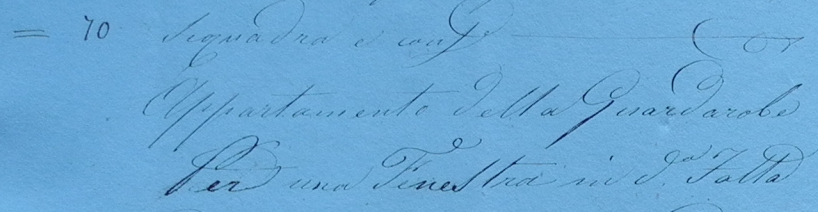 = 70 Squadra e conf.e
Appartamento della Guardarobe
Per una Finestra in d.a Fatta